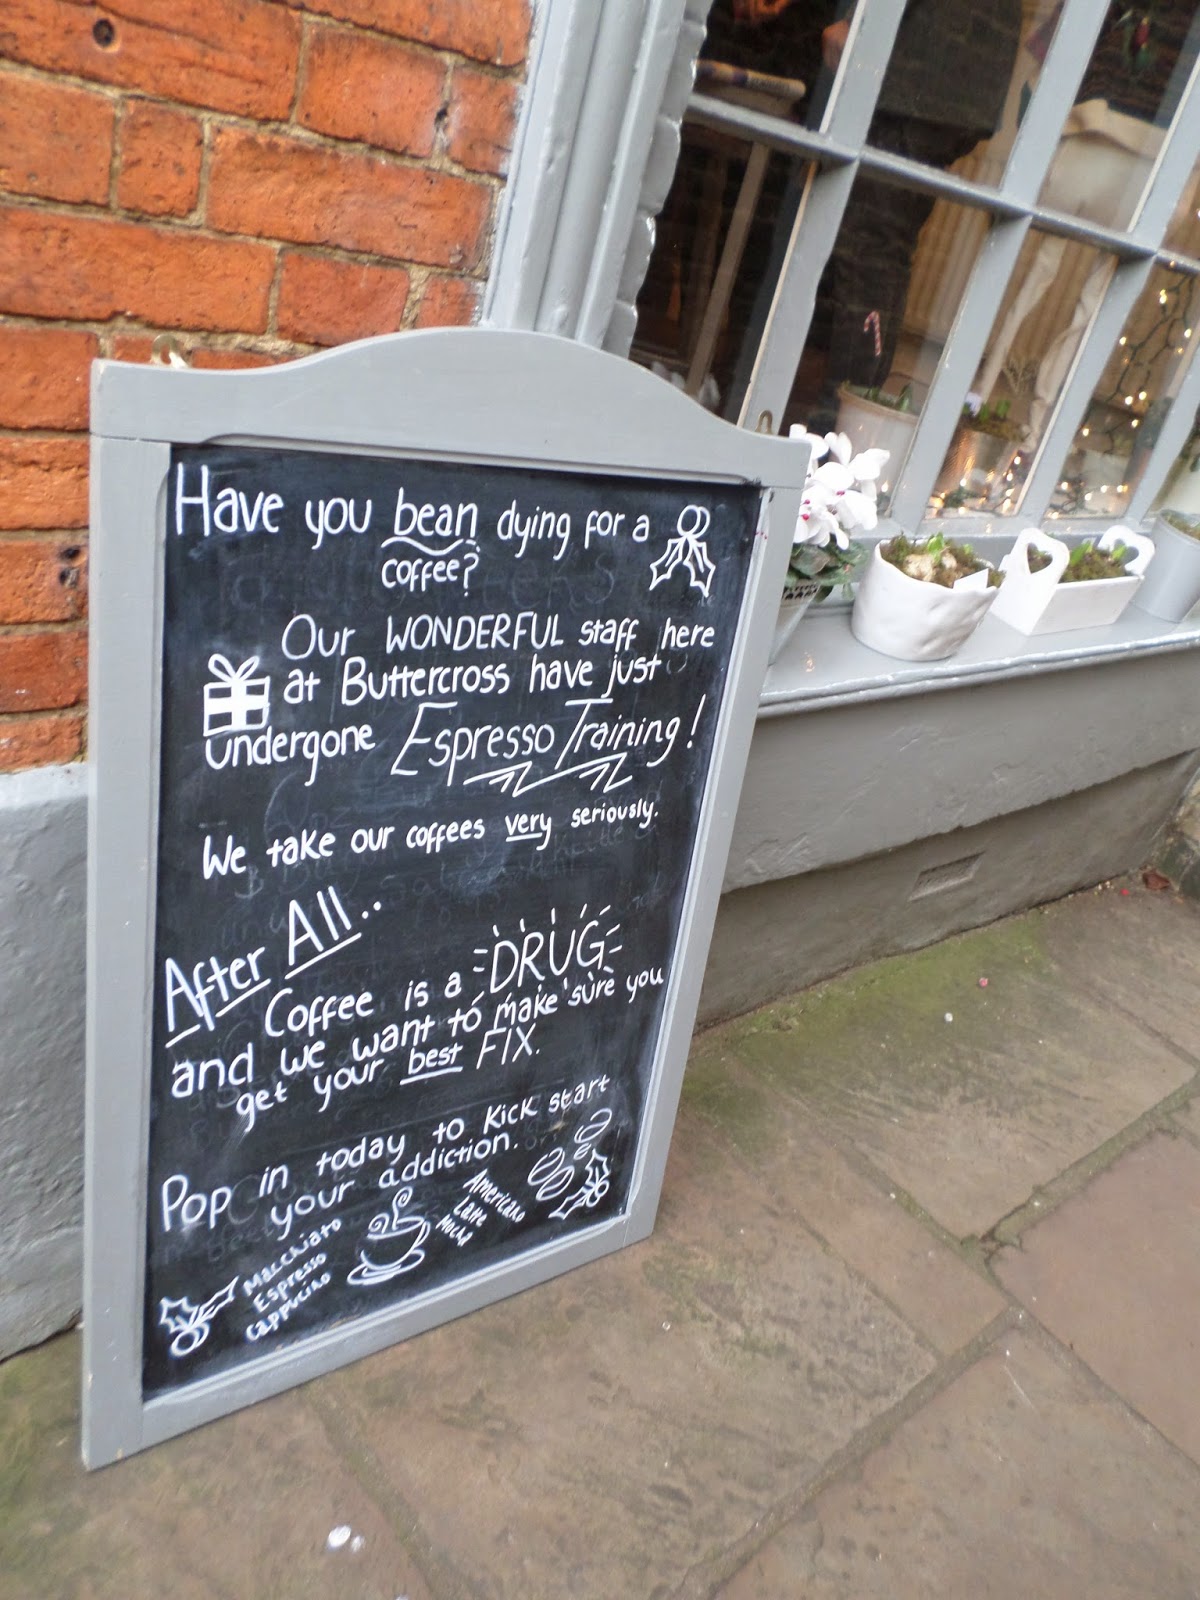 Have you bean dying for a
coffee?
Our WONDERFUL staff here
at Buttercross have just
undergone Espresso Training!
We take our coffees very seriously.
After All..
Coffee is a DRUG
and we want to make sure you
get your best FIX.
Pop in today to Kick start
your addiction.
Macchiato
Espresso
Cappucino
Americano
Latte
Mocha